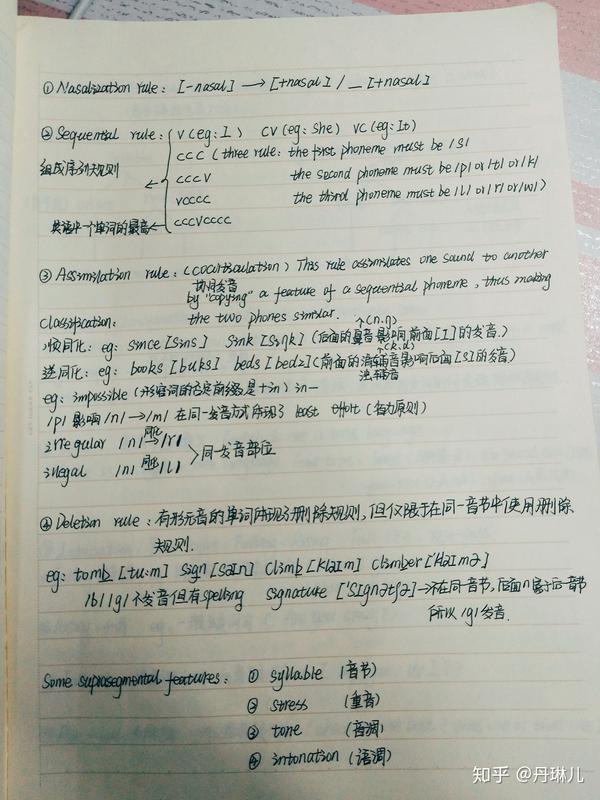 ① Nasalization rule: [-nasal] → [+nasal] / __ [+nasal]
② Sequential rule: V (eg: I) CV (eg: she) VC (eg: It)
组成序列规则
CCC (three rule: the first phoneme must be /s/
CCCV the second phoneme must be /p/ or /t/ or /k/
VCCCC the third phoneme must be /l/ or /r/ or /w/)
英语中一个单词的最音←
CCCVCCCC
③ Assimilation rule: (cocurtisulation) This rule assimilates one sound to another
协同发音
by "copying" a feature of a sequential phoneme, thus making
the two phones similar.
Classification:
↗(n.ŋ)
顺同化: eg: since [sins] sink [siŋk] (后面的鼻音影响前面[I]的发音.)
↗(k.d)
逆同化: eg: books [buks] beds [bedz] (前面的清辅音影响后面[s]的发音)
浊辅音
eg: impossible (形容词的否定前缀是 +in) in—
/p/ 影响 /n/ → /m/ 在同一发音方式体现了 least effort (省力原则)
irregular /n/ 同化→ /r/
同一发音部位
illegal /n/ 同化→ /l/
④ Deletion rule: 有形无音的单词体现了删除规则, 但仅限于在同一音节中使用删除
规则.
eg: tomb [tu:m] sign [saIn] climb [klaIm] climber ['klaImə]
/b/ /g/ 不发音但有spelling signature ['sIgnətʃə] → 不在同一音节, 后面n属于后一音节
所以 /g/ 发音.
Some suprasegmental features: ① syllable (音节)
② stress (重音)
③ tone (音调)
④ intonation (语调)
知乎 @丹琳儿